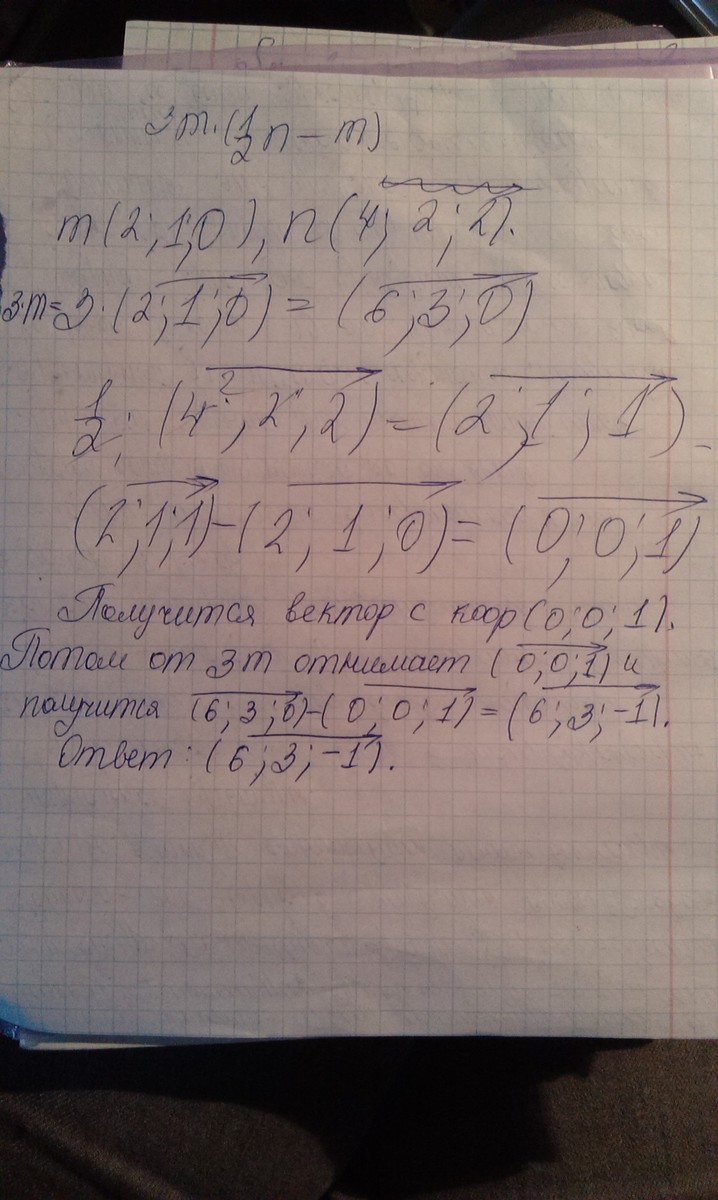 3m·(1/2n-m)
m(2;1;0), n(4; 2; 2).
3·m=3·(2;1;0) = (6;3;0)
1/2; (4²; 2; 2) = (2; 1; 1) -
(2;1;1)-(2; 1; 0) = (0; 0; 1)
Получится вектор с коор (0; 0; 1).
Потом от 3m отнимает (0;0;1) и
получится (6; 3; 0)-(0; 0; 1) = (6; 3; -1).
Ответ: (6; 3; -1).